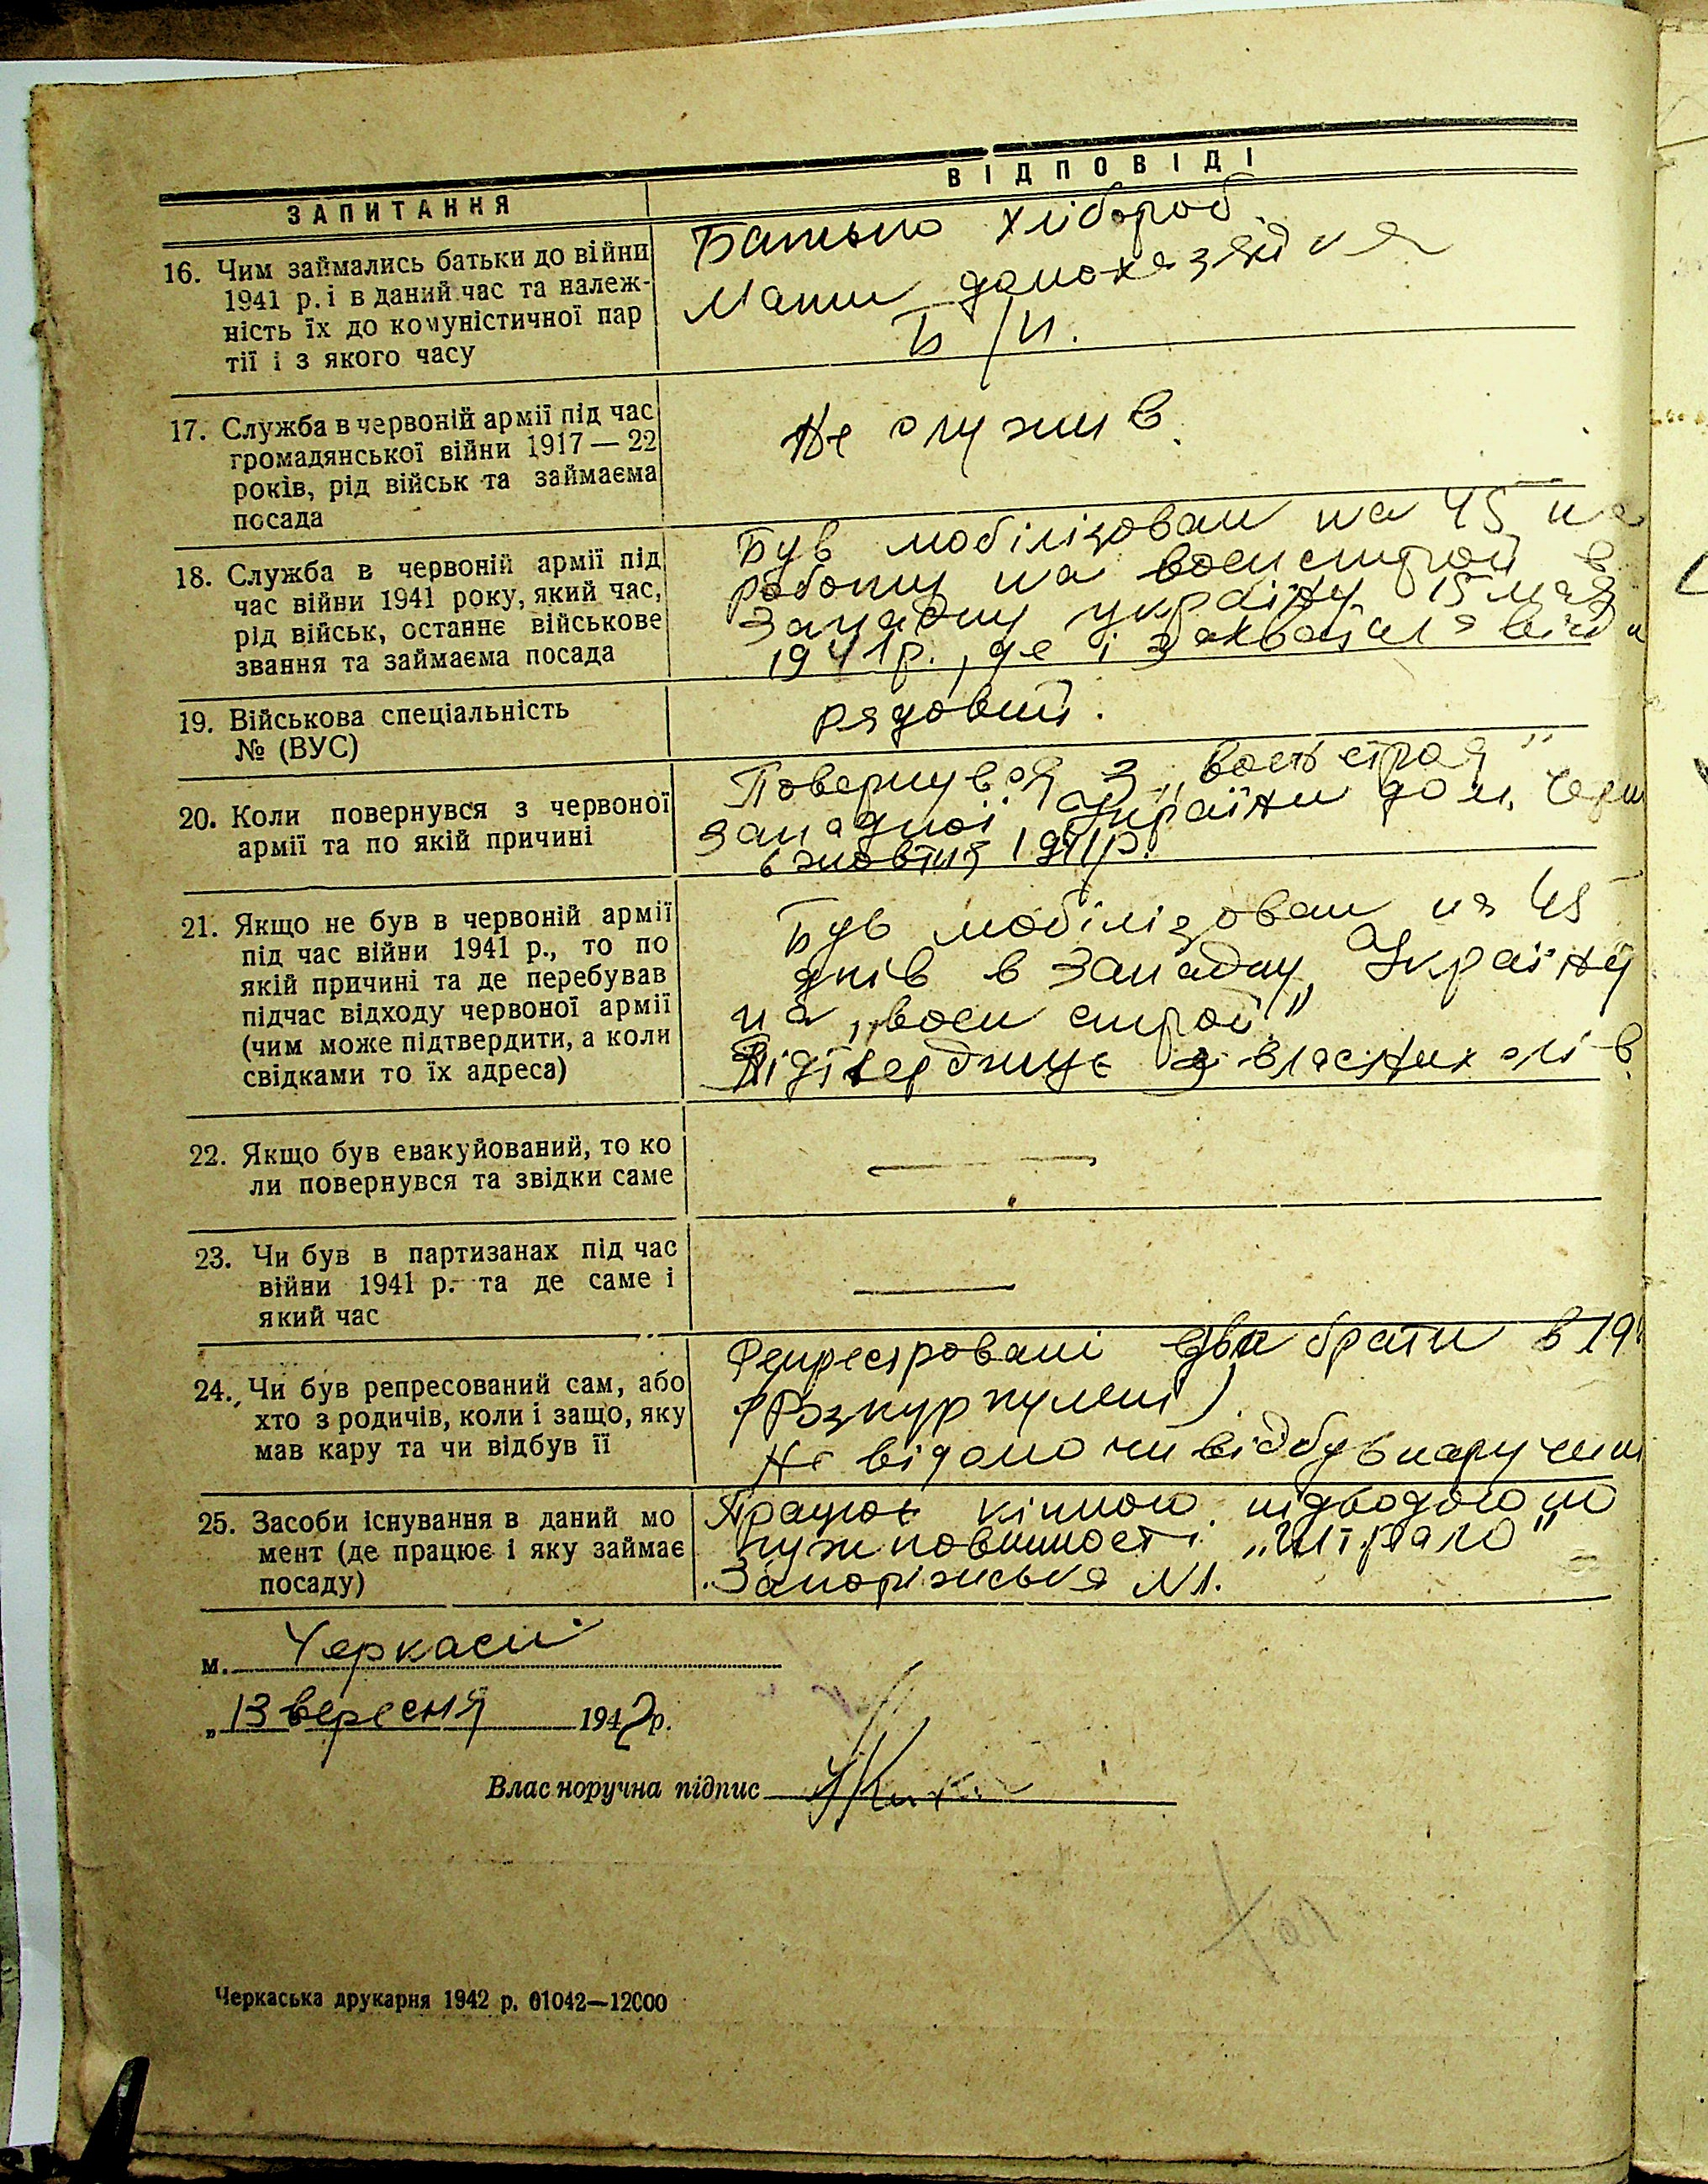 ЗАПИТАННЯ
ВІДПОВІДІ
16. Чим займались батьки до війни
1941 р. і в даний час та належ-
ність їх до комуністичної пар
тії і з якого часу
Батько хлібороб.
Мати домохазяйка
Б/П.
17. Служба в червоній армії під час
громадянської війни 1917 — 22
років, рід військ та займаєма
посада
Не служив.
18. Служба в червоній армії під
час війни 1941 року, який час,
рід військ, останнє військове
звання та займаєма посада
Був мобілізован на 45 на
роботу на военстрой в
Западну україну 15 мая
1941р., де і
19. Військова спеціальність
№ (ВУС)
рядовий.
20. Коли повернувся з червоної
армії та по якій причині
Повернувся з „военстроя"
Западної України до м. Черк
6 жовтня 1941р.
21. Якщо не був в червоній армії
під час війни 1941 р., то по
якій причині та де перебував
підчас відходу червоної армії
(чим може підтвердити, а коли
свідками то їх адреса)
Був мобілізован на 45
днів в Западну Україну
на „воен строй"
Підтверджує з власних слів.
22. Якщо був евакуйований, то ко
ли повернувся та звідки саме
—
23. Чи був в партизанах під час
війни 1941 р. та де саме і
який час
—
24. Чи був репресований сам, або
хто з родичів, коли і защо, яку
мав кару та чи відбув її
Репресровані два брати в 19
(Розкуркулені)
Не відомо чи відбув кару чи ні
25. Засоби існування в даний мо
мент (де працює і яку займає
посаду)
Працює кінною підводою по
гужповинності
Запоріжська №1.
м. Черкаси
„13 вересня 1942р.
Власноручна підпис
Черкаська друкарня 1942 р. 01042—12000